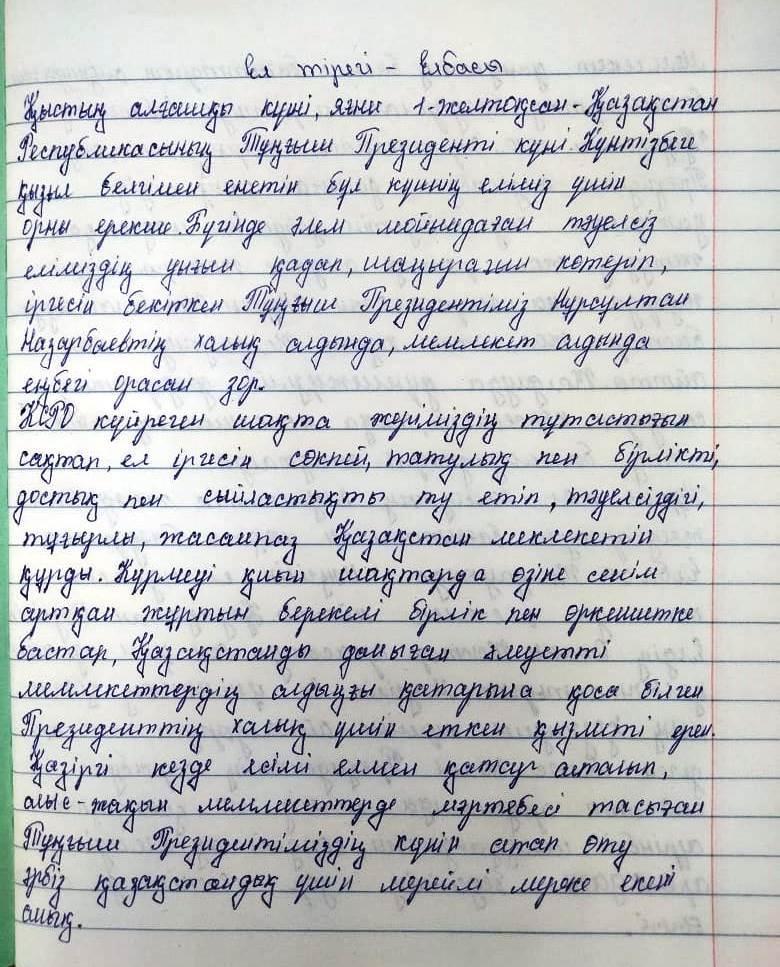 Ел тірегі - Елбасы
Қыстың алғашқы күні, яғни 1-желтоқсан - Қазақстан
Республикасының Тұңғыш Президенті күні. Күнтізбеге
қызыл белгімен енетін бұл күннің еліміз үшін
орны ерекше. Бүгінде әлем мойындаған тәуелсіз
еліміздің уығын қадап, шаңырағын көтеріп,
іргесін бекіткен Тұңғыш Президентіміз Нұрсұлтан
Назарбаевтің халық алдында, мемлекет алдында
еңбегі орасан зор.
КСРО күйреген шақта жеріміздің тұтастығын
сақтап, ел іргесін сөкпей, татулық пен бірлікті,
достық пен сыйластықты ту етіп, тәуелсіздігі,
тұғырлы, жасампаз Қазақстан меклекетін
құрды. Күрмеуі қиын шақтарда өзіне сенім
артқан жұртын берекелі бірлік пен өркениетке
бастап, Қазақстанды дамыған әлеуетті
мемлекеттердің алдыңғы қатарына қоса білген
Президенттің халық үшін еткен қызметі ерен.
Қазіргі кезде есімі елмен қатар аталып,
алыс-жақын мемлекеттерде мәртебесі тасыған
Тұңғыш Президентіміздің күнін атап өту
әрбіз қазақстандық үшін мерейлі мереке екені
анық.